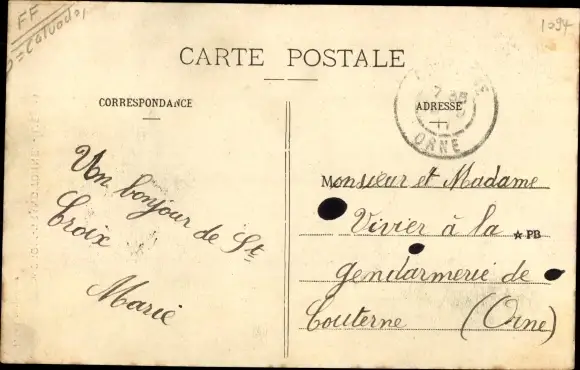 FF
Calvados
1094
CARTE POSTALE
CORRESPONDANCE
ADRESSE
ORNE
Un bonjour de Ste
Croix
Marie
Monsieur et Madame
Vivier à la
PB
gendarmerie de
Couterne (Orne)